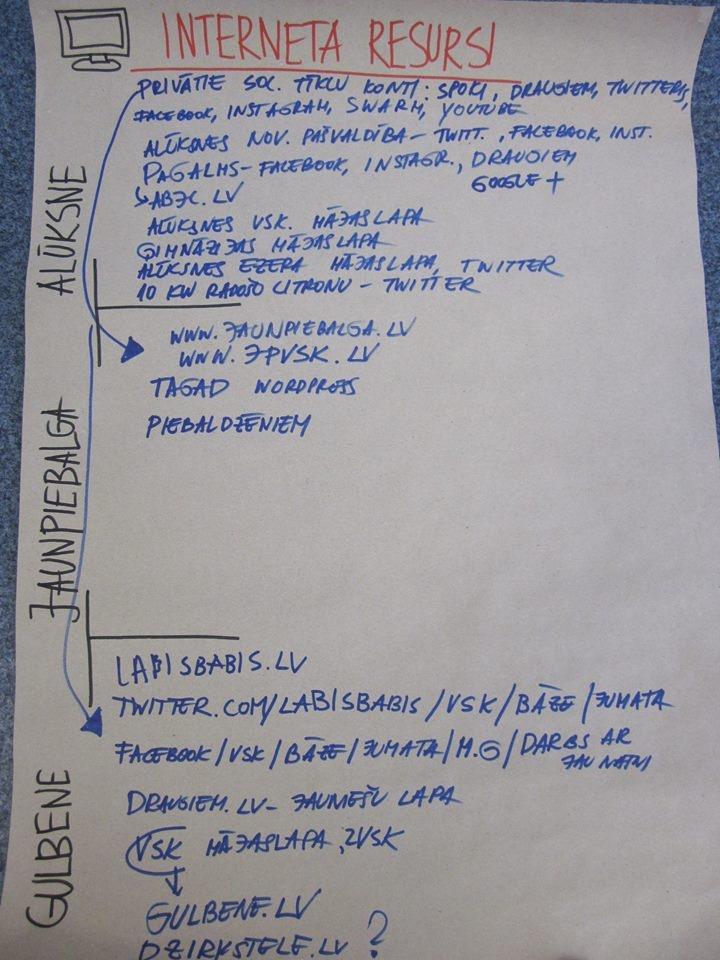 INTERNETA RESURSI
PRIVĀTIE SOC. TĪKLU KONTI: SPOKI, DRAUGIEM, TWITTERIS,
FACEBOOK, INSTAGRAM, SWARM, YOUTUBE
ALŪKSNES NOV. PAŠVALDĪBA - TWITT., FACEBOOK, INST.
PAGALMS - FACEBOOK, INSTAGR., DRAUGIEM
GOOGLE +
ABJC.LV
ALŪKSNES VSK. MĀJASLAPA
ĢIMNĀZIJAS MĀJASLAPA
ALŪKSNES EZERA MĀJASLAPA, TWITTER
10 KW RADOŠO CITRONU - TWITTER
ALŪKSNE
WWW.JAUNPIEBALGA.LV
WWW.JPVSK.LV
TAGAD WORDPRESS
PIEBALDZĒNIEM
JAUNPIEBALGA
LABISBABIS.LV
TWITTER.COM/LABISBABIS/VSK/BĀZE/JUMATA
FACEBOOK/VSK/BĀZE/JUMATA/M.G/DARBS AR
JAUNATNI
DRAUGIEM.LV - JAUNIEŠU LAPA
VSK MĀJASLAPA, 2VSK
GULBENE.LV
DZIRKSTELE.LV ?
GULBENE